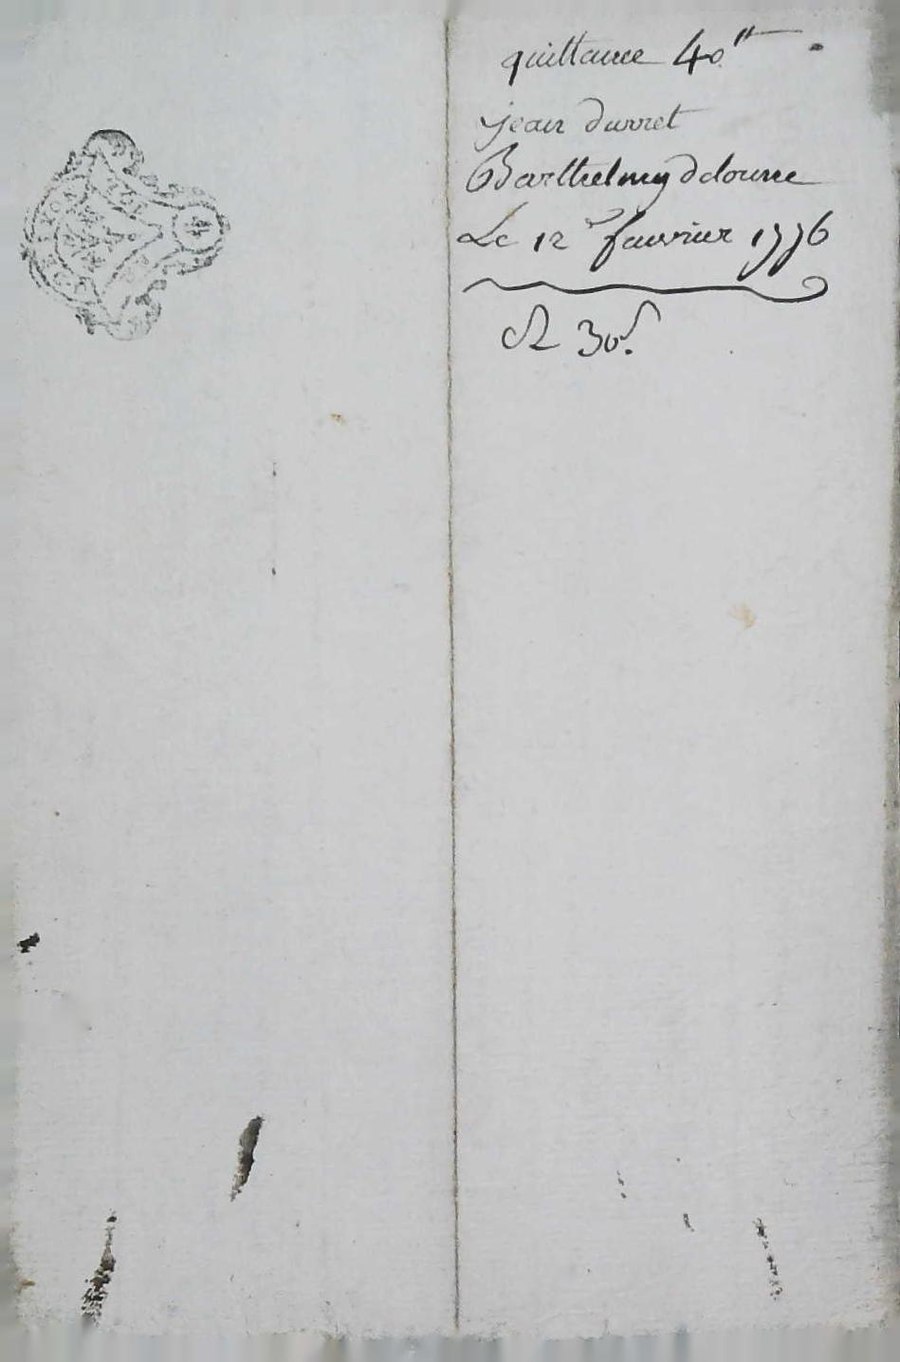 quittance 40#
jean durret
Barthelmy delorme
Le 12e feuvrier 1776
R 30s.